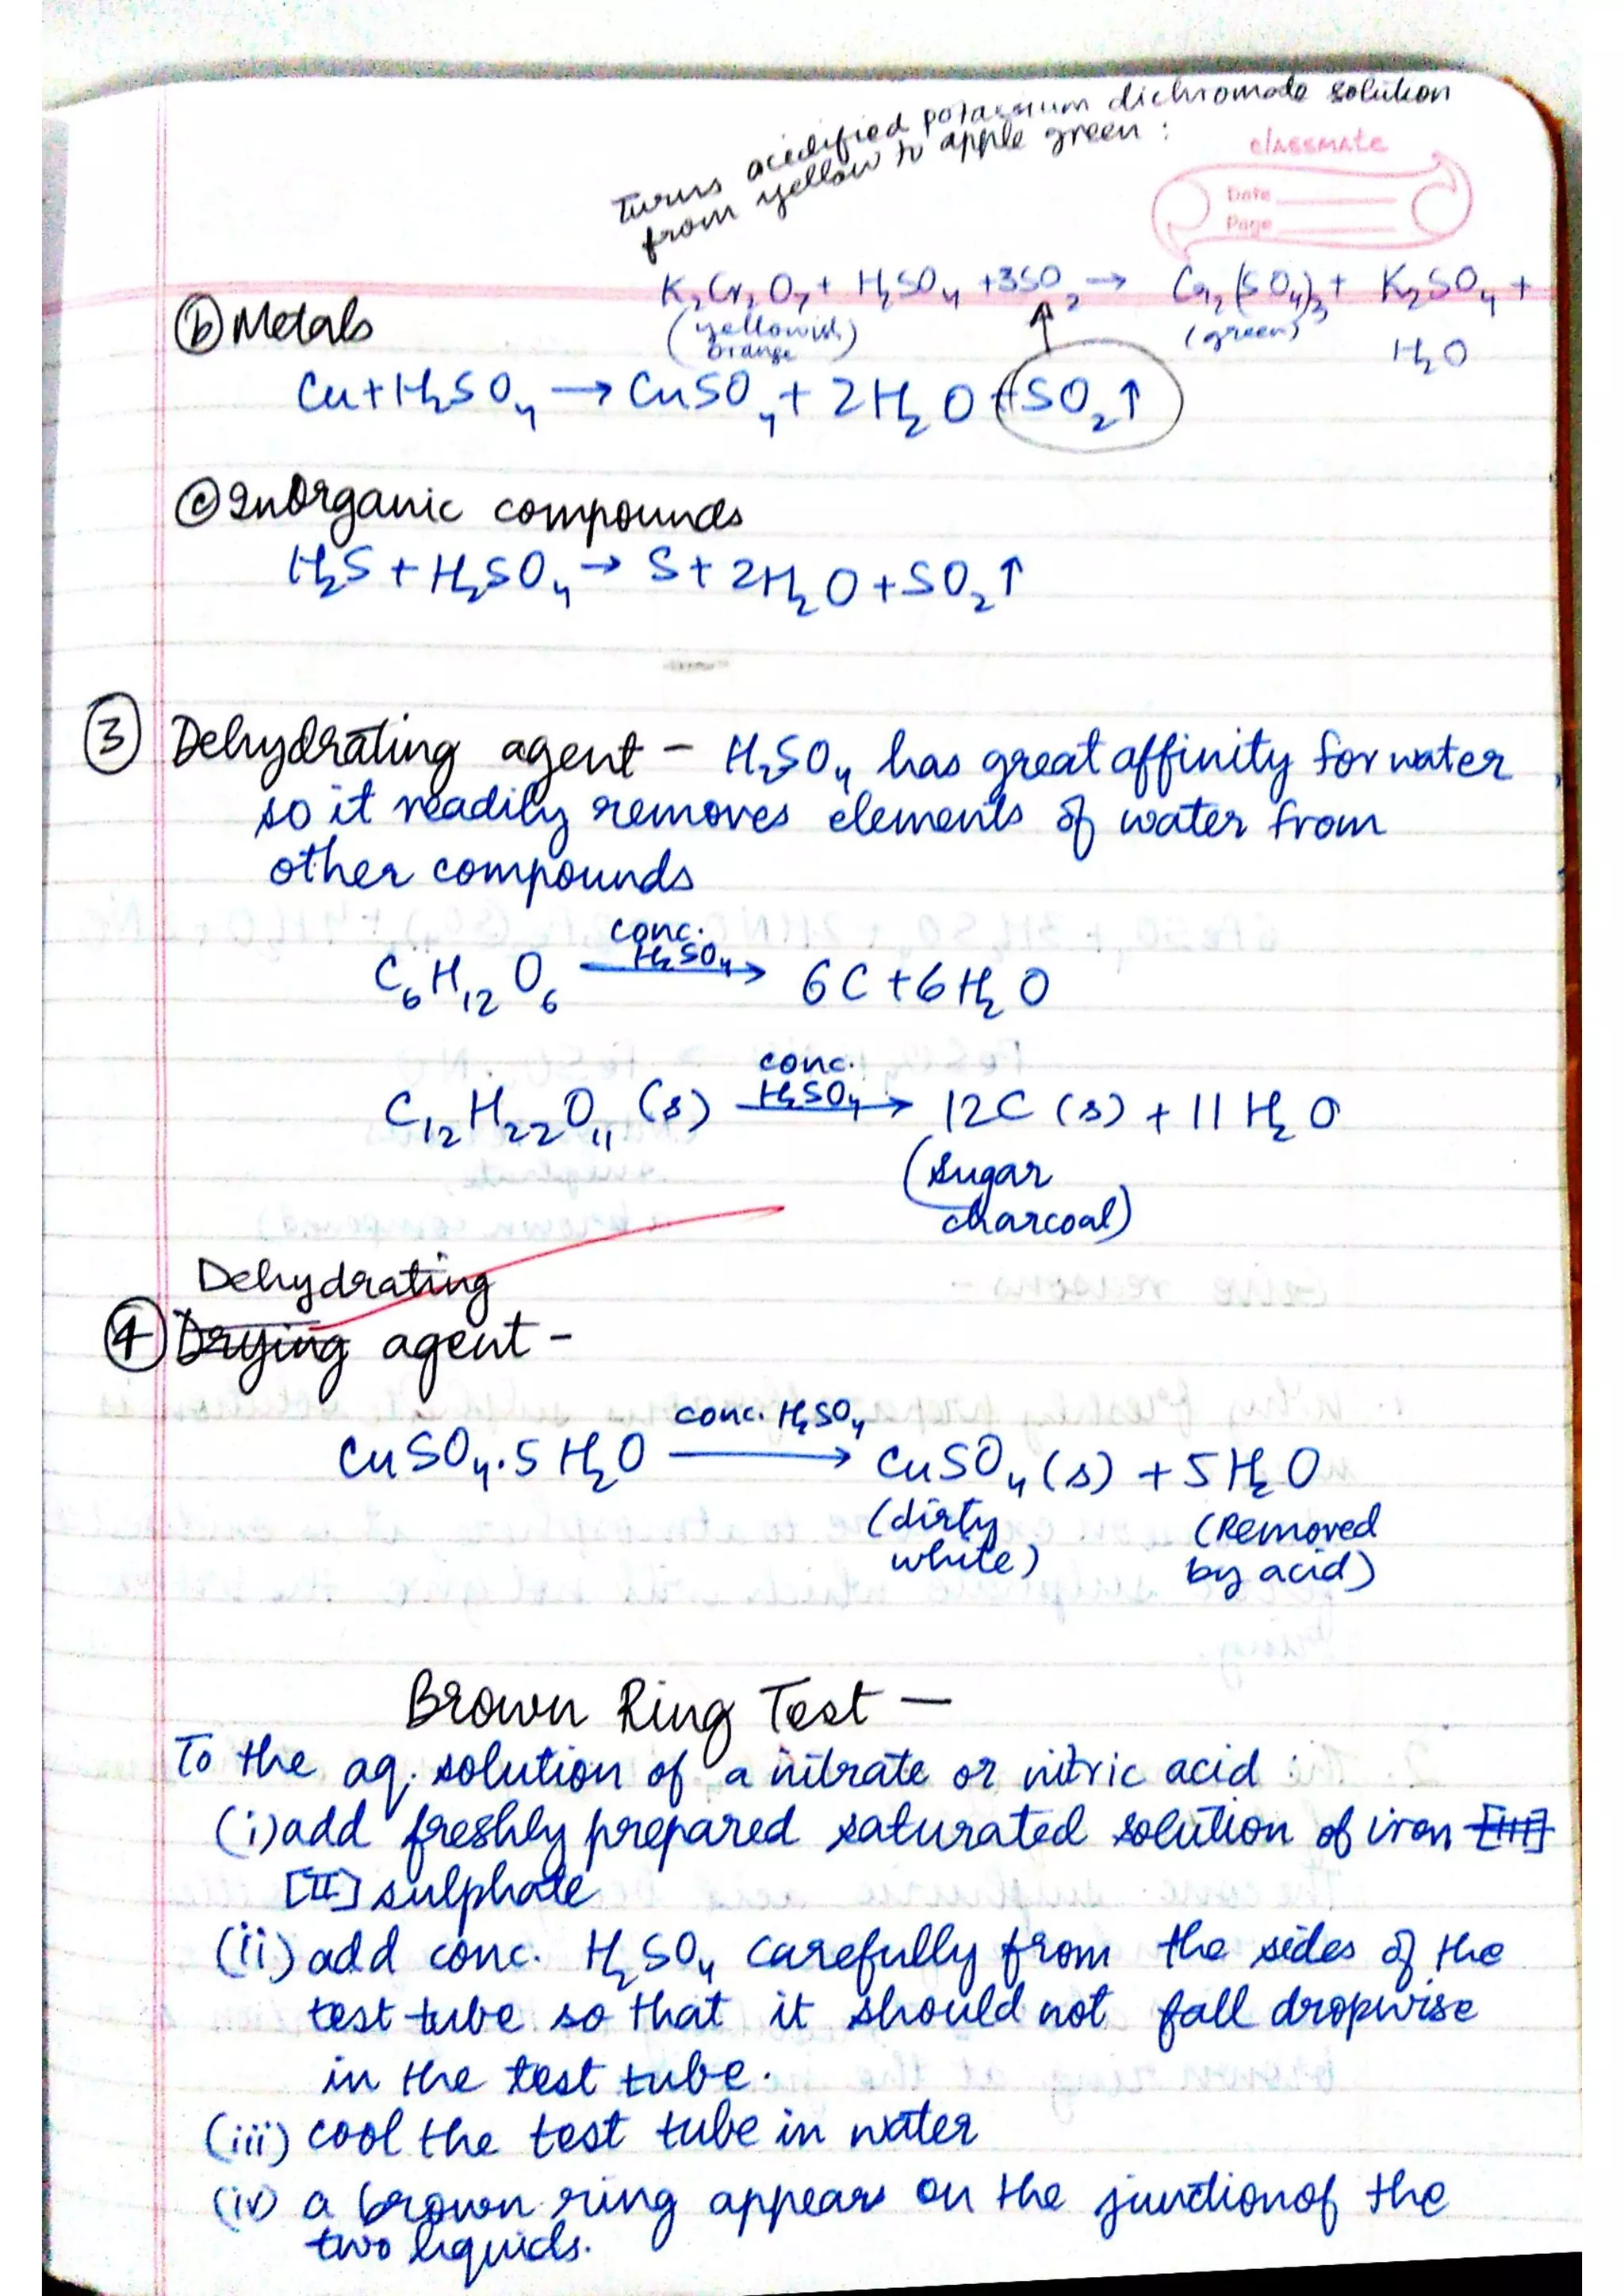 Turns acidified potassium dichromate solution
from yellow to apple green :
classmate
Date
Page
K₂Cr₂O₇ + H₂SO₄ + 3SO₂ → Cr₂(SO₄)₃ + K₂SO₄ +
(yellowish orange) (green) H₂O
ⓑ Metals
Cu + H₂SO₄ → CuSO₄ + 2H₂O + SO₂↑
ⓒ Inorganic compounds
H₂S + H₂SO₄ → S + 2H₂O + SO₂↑
③ Dehydrating agent - H₂SO₄ has great affinity for water
so it readily removes elements of water from
other compounds
conc.
H₂SO₄
C₆H₁₂O₆ → 6C + 6H₂O
conc.
H₂SO₄
C₁₂H₂₂O₁₁ (s) → 12C (s) + 11H₂O
(sugar
charcoal)
Dehydrating
④ Drying agent -
conc. H₂SO₄
CuSO₄.5H₂O → CuSO₄(s) + 5H₂O
(dirty (Removed
white) by acid)
Brown Ring Test —
To the aq. solution of a nitrate or nitric acid :
(i) add freshly prepared saturated solution of iron [III]
[II] sulphate
(ii) add conc. H₂SO₄ carefully from the sides of the
test tube so that it should not fall dropwise
in the test tube.
(iii) cool the test tube in water
(iv) a brown ring appears on the junction of the
two liquids.